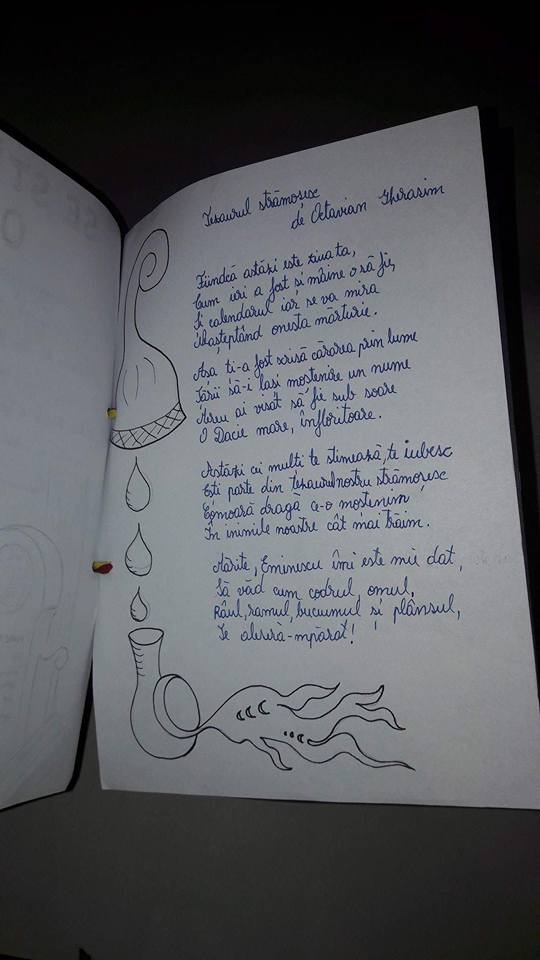 Tezaurul strămoșesc
de Octavian Gherasim
Fiindcă astăzi este ziua ta,
Cum ieri a fost și mâine o să fie,
Și calendarul iar se va mira
Așteptând onesta mărturie.
Așa ți-a fost scrisă cărarea prin lume
Țării să-i lași moștenire un nume
Mereu ai visat să fie sub soare
O Dacie mare, înfloritoare.
Astăzi cei mulți te stimează, te iubesc
Ești parte din tezaurul nostru strămoșesc
Comoară dragă ce-o moștenim
În inimile noastre cât mai trăim.
Mărite, Eminescu îmi este mie dat,
Să văd cum codrul, omul,
Râul, ramul, bucumul și plânsul,
Te aleseră-mpărat!